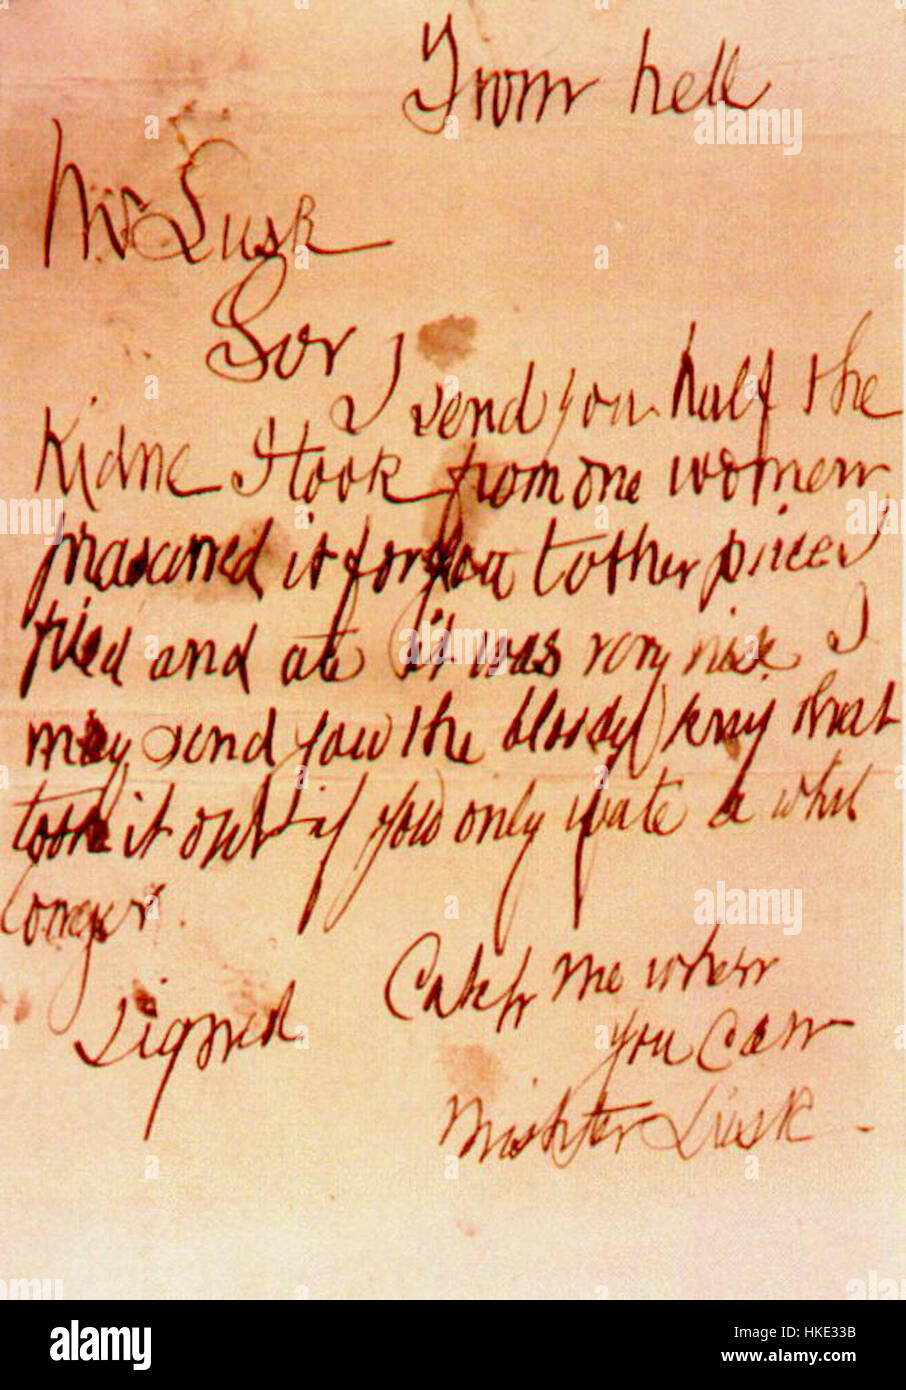 From hell
Mr Lusk
Sor
I send you half the
Kidne I took from one women
prasarved it for you tother piece I
fried and ate it was very nise I
may send you the bloody knif that
took it out if you only wate a whil
longer.
Signed
Catch me when
you can
Mishter Lusk
alamy stock photo
HKE33B
www.alamy.com